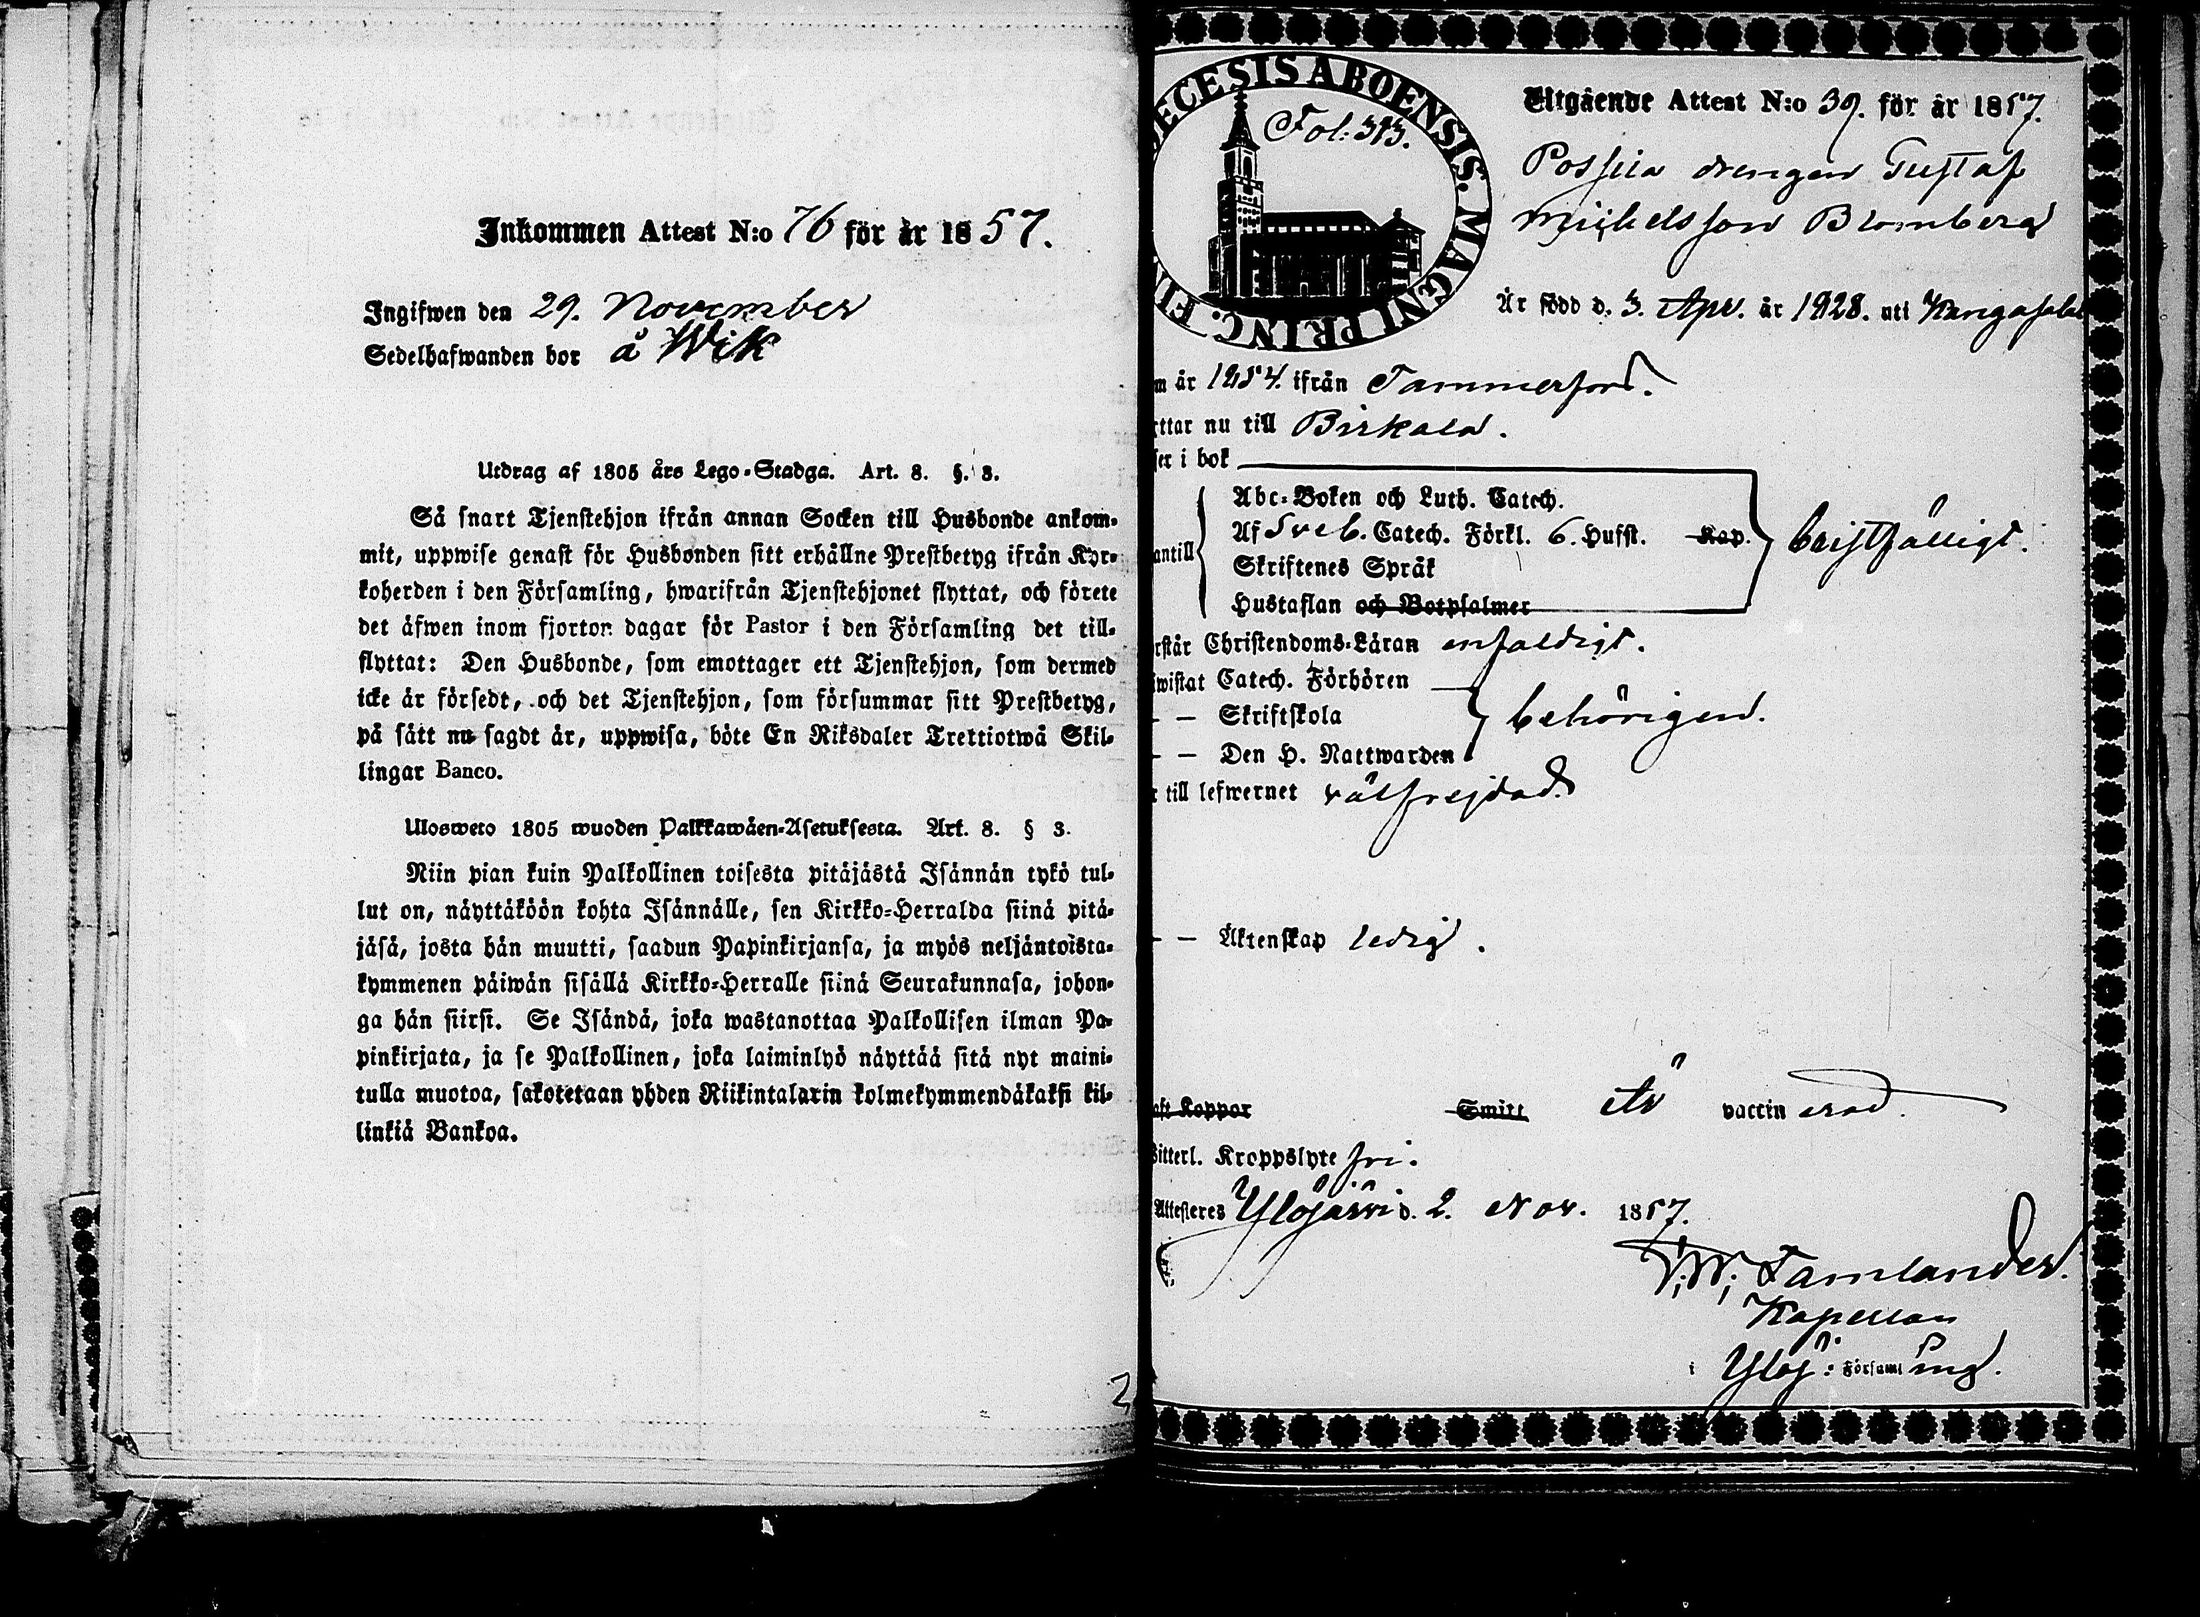 Inkommen Attest N:o 76 för år 1857.
Ingifwen den 29. November
Sedelhafwanden bor å Wik
Utdrag af 1805 års Lego-Stadga. Art. 8. §. 3.
Så snart Tjenstehjon ifrån annan Socken till Husbonde ankom-
mit, uppwise genast för Husbonden sitt erhållne Prestbetyg ifrån Kyr-
koherden i den Församling, hwarifrån Tjenstehjonet flyttat, och förete
det äfwen inom fjorton dagar för Pastor i den Församling det till-
flyttat: Den Husbonde, som emottager ett Tjenstehjon, som dermed
icke är försedt, och det Tjenstehjon, som försummar sitt Prestbetyg,
på sätt nu sagdt är, uppwisa, böte En Riksdaler Trettiotwå Skil-
lingar Banco.
Ulosweto 1805 wuoden Palkkawäen-Asetuksesta. Art. 8. § 3.
Niin pian kuin Palkollinen toisesta pitäjästä Isännän tykö tul-
lut on, näyttäköön kohta Isännälle, sen Kirkko-Herralda siinä pitä-
jäsä, josta hän muutti, saadun Papinkirjansa, ja myös neljäntoista-
kymmenen päiwän sisällä Kirkko-Herralle siinä Seurakunnasa, johon-
ga hän siirsi. Se Isändä, joka wastanottaa Palkollisen ilman Pa-
pinkirjata, ja se Palkollinen, joka laiminlyö näyttää sitä nyt maini-
tulla muotoa, sakotetaan yhden Riikintalarin kolmekymmendäkaksi kil-
linkiä Bankoa.
ECESIS ABOENSIS. MAGNI PRINC. FI
Fol: 313.
Utgående Attest N:o 39. för år 1857.
Possila drengen Gustaf
Michelsson Blomberg
Är född d. 3. Apr. år 1828. uti Kangasala
m år 1854. ifrån Tammerfors.
ttar nu till Birkala.
ser i bok
Abc-Boken och Luth. Catech.
Af Sveb. Catech. Förkl. 6. Hufst. Kap.
antill
bristfälligt.
Skriftenes Språk
Hustaflan och Botpsalmer
rstår Christendoms-Läran enfaldigt.
wistat Catech. Förhören
– – Skriftskola
behörigen.
– – Den H. Nattwarden
r till lefwernet välfrejdad.
– – Äktenskap ledig.
aft Koppor Smitt Är vaccinerad.
Witterl. Kroppslyte fri.
Attesteres Ylöjärvi d. 2. Nov. 1857.
Tamlander.
Kapellan
i Ylöj: Församling.